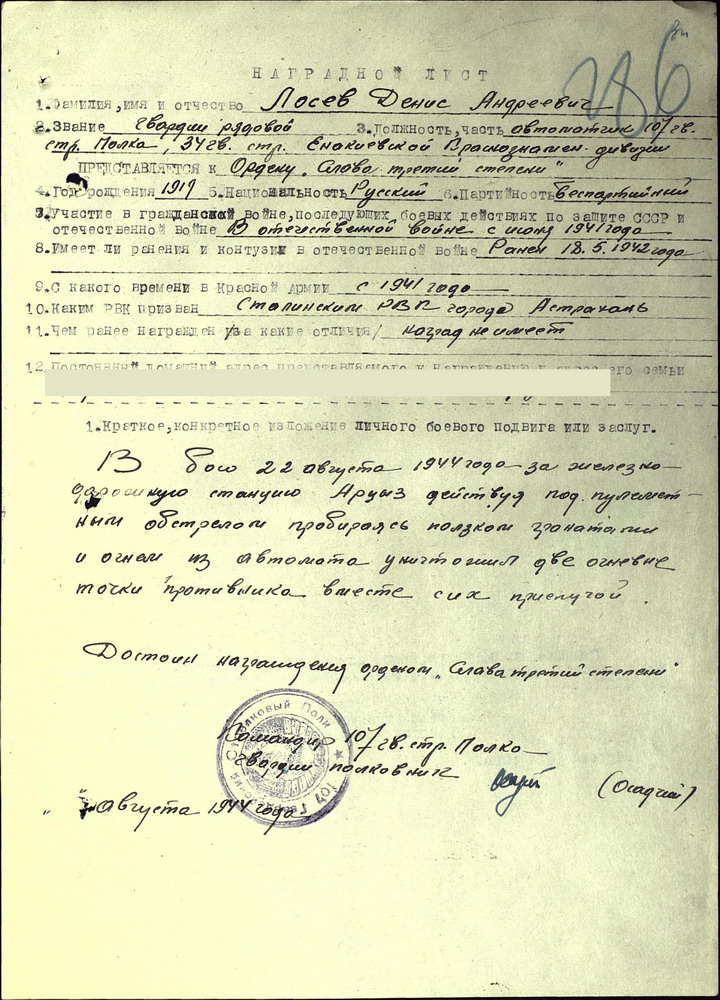 286
НАГРАДНОЙ ЛИСТ
1.Фамилия,имя и отчество Лосев Денис Андреевич
2.Звание гвардии рядовой 3.Должность,часть автоматчик 107 гв.
стр. Полка, 34 гв. стр. Енакиевской Краснознамен. дивизии
ПРЕДСТАВЛЯЕТСЯ к Ордену „Слава третий степени"
4.Год рождения 1919 5.Национальность Русский 6.Партийность беспартийный
7.Участие в гражданской войне,последующих боевых действиях по защите СССР и
отечественной войне В отечественной войне с июня 1941 года
8.Имеет ли ранения и контузии в отечественной войне Ранен 18.5.1942 года
9.С какого времени в Красной Армии с 1941 года
10.Каким РВК призван Сталинским РВК города Астрахань
11.Чем ранее награжден /за какие отличия/ наград не имеет
12.Постоянный домашний адрес представляемого к награждению и адрес его семьи
1.Краткое,конкретное изложение личного боевого подвига или заслуг.
В бою 22 августа 1944 года за железно-
дорожную станцию Арцыз действуя под пулемет-
ным обстрелом пробираясь ползком гранатами
и огнем из автомата уничтожил две огневые
точки противника вместе с их прислугой.
Достоин награждения орденом „Слава третий степени"
Командир 107 гв. стр. Полка
гвардии полковник (Осадчий)
" " Августа 1944 года
Стрелковый Полк 107